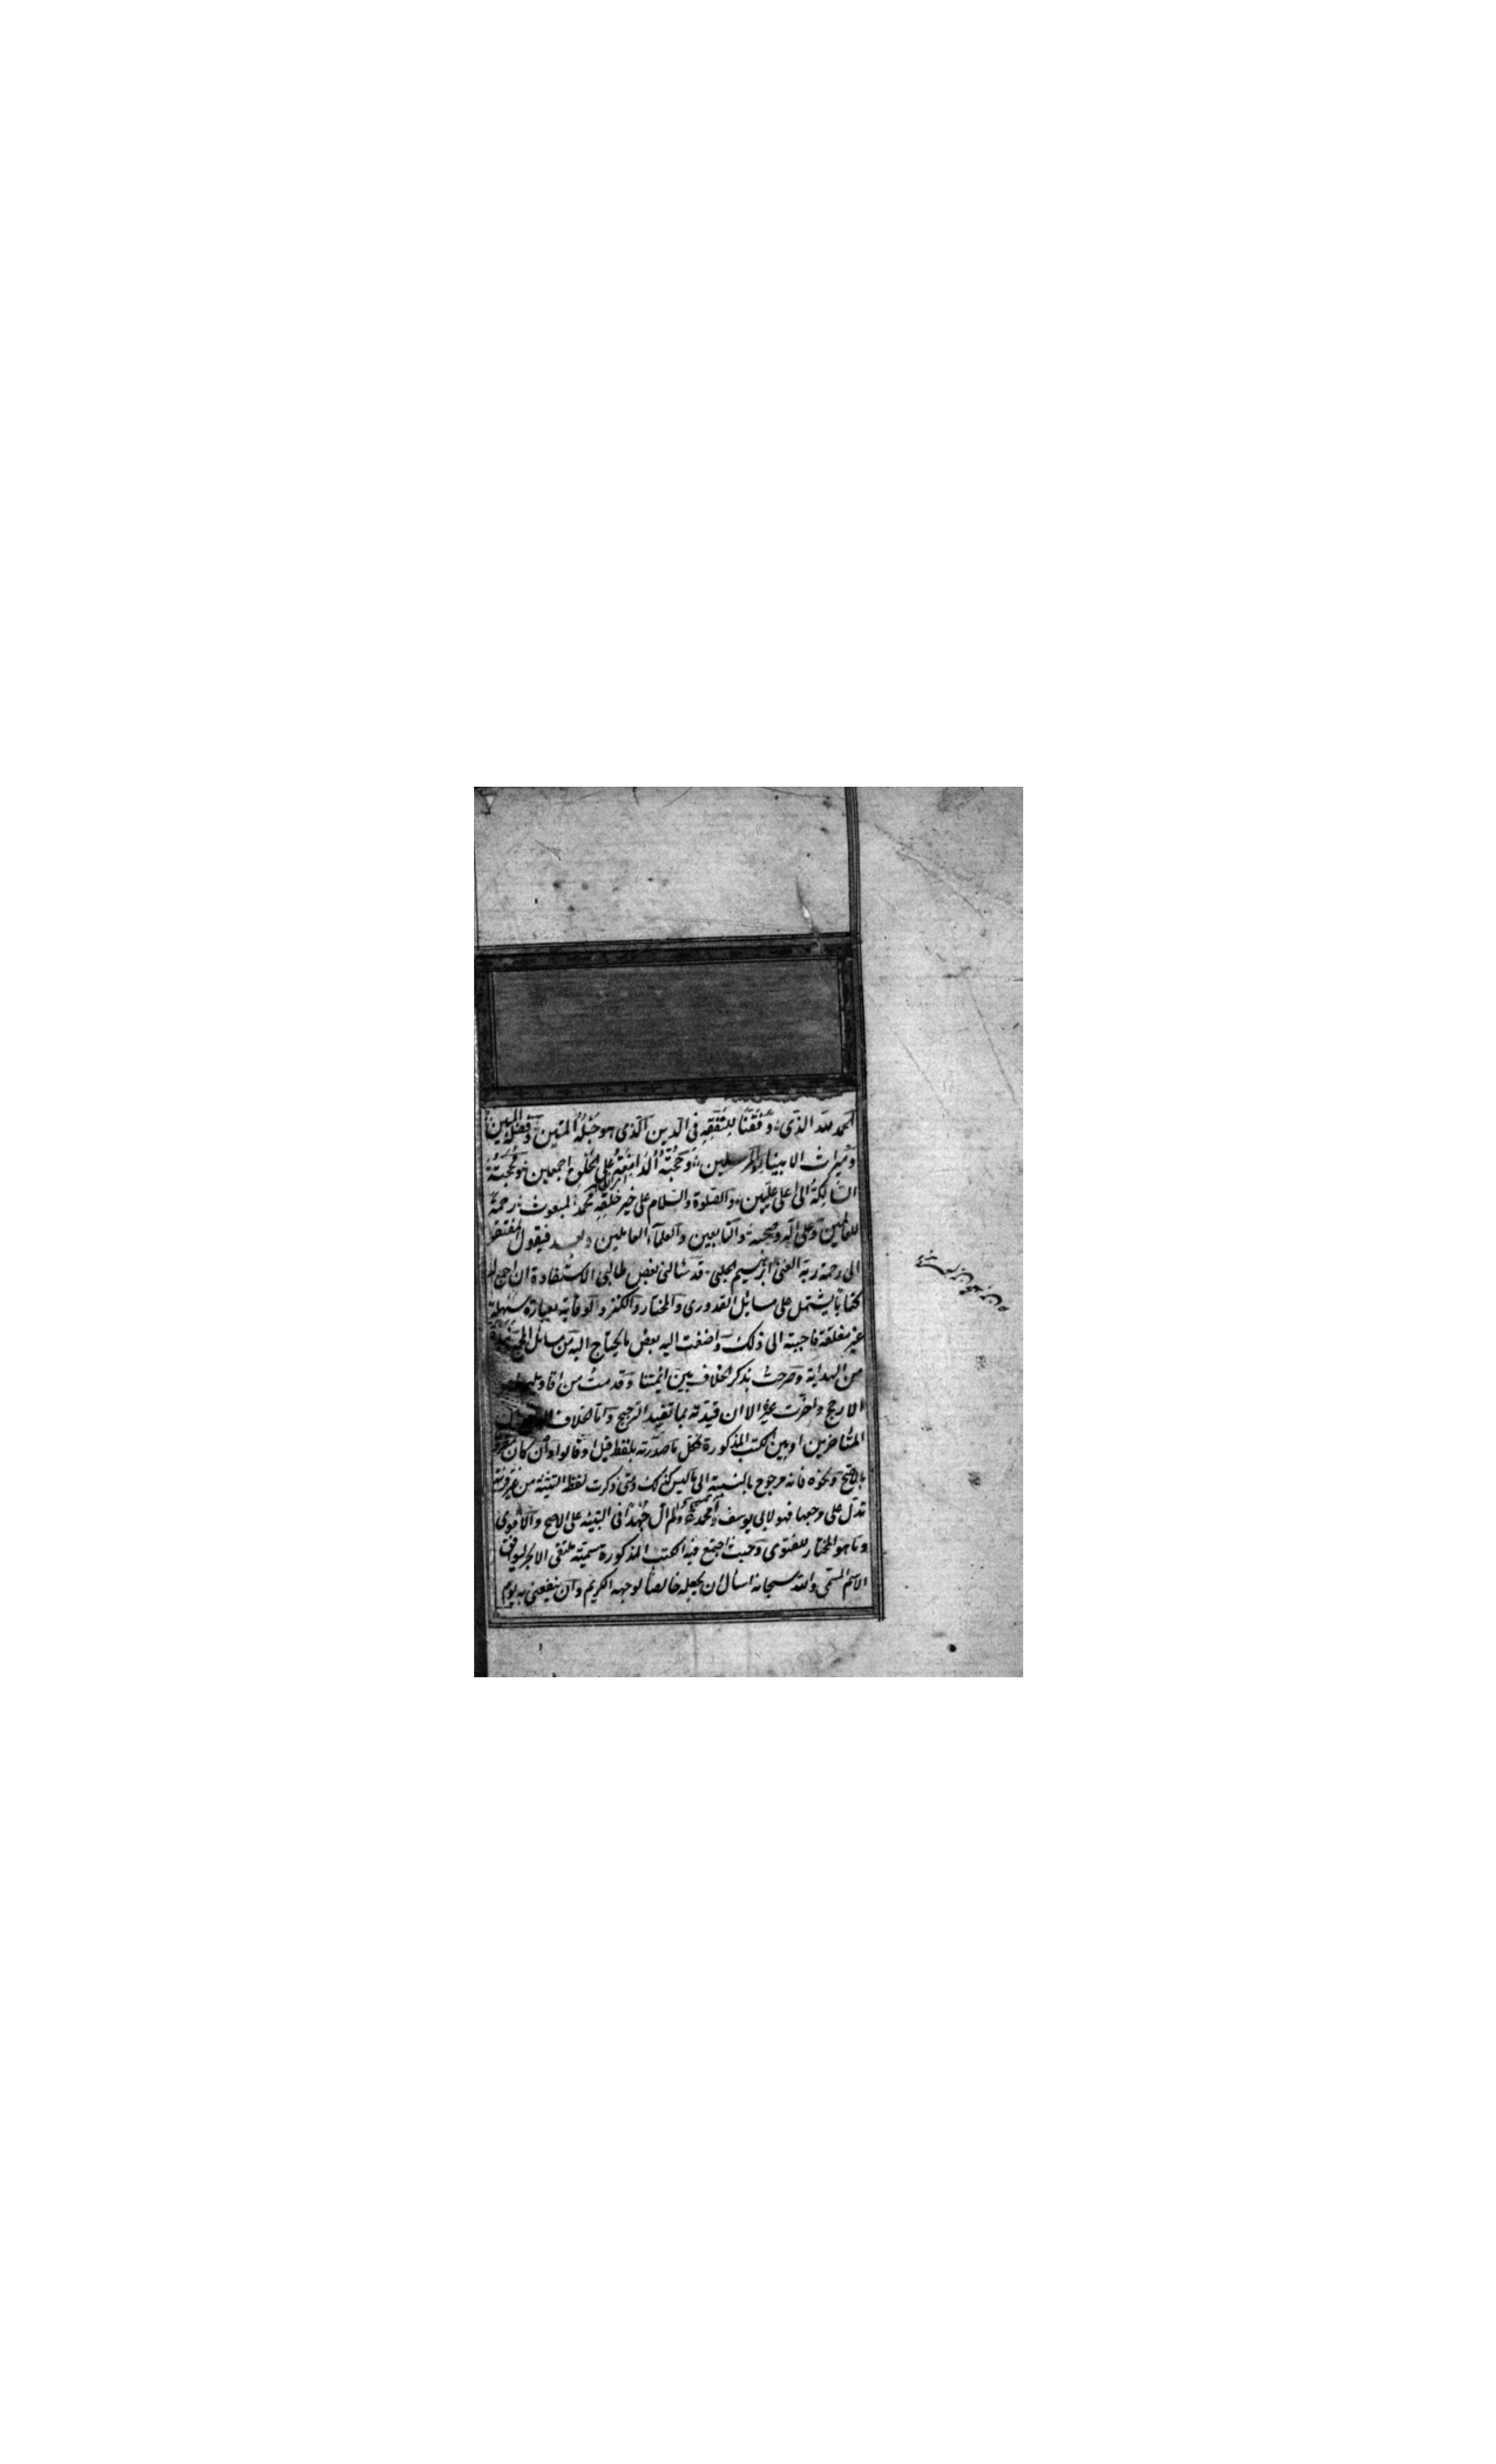 الحمد لله الذى وفقنا للتفقه فى الدين الذى هو حبله المتين وفضله المبين
وميراث الانبياء والمرسلين وحجته الدامغة على الخلق اجمعين ومحجته
السالكة الى اعلى عليين والصلوة والسلام على خير خلقه محمد المبعوث رحمة
للعالمين وعلى اله وصحبه والتابعين والعلماء العاملين وبعد فيقول المفتقر
الى رحمة ربه الغنى ابرهيم الحلبى قد سألنى بعض طالبى الاستفادة ان اجمع له
كتابا يشتمل على مسائل القدورى والمختار والكنز والوقاية بعبارة سهلة
غير مغلقة فاجبته الى ذلك واضفت اليه بعض ما يحتاج اليه من مسائل المجمع
من الهداية وصرحت بذكر الخلاف بين ائمتنا وقدمت من اقاويلهم
الارجح واخرت غيره الا ان قيدته بما تفيد الترجيح واما الخلاف
المتأخرين او بين الكتب المذكورة فكل ما صدرته بلفظ قيل او قالوا وان كان مقرونا
بالاصح ونحوه فانه مرجوح بالنسبة الى ما ليس كذلك ومتى ذكرت لفظ التثنية من غير قرينة
تدل على مرجعها فهو لابى يوسف ومحمد ولم ال جهدا فى التنبيه على الاصح والاقوى
وما هو المختار للفتوى وحيث اجتمع فيه الكتب المذكورة سميته ملتقى الابحر ليوافق
الاسم المسمى والله سبحانه اسأل ان يجعله خالصا لوجهه الكريم وان ينفعنى به يوم